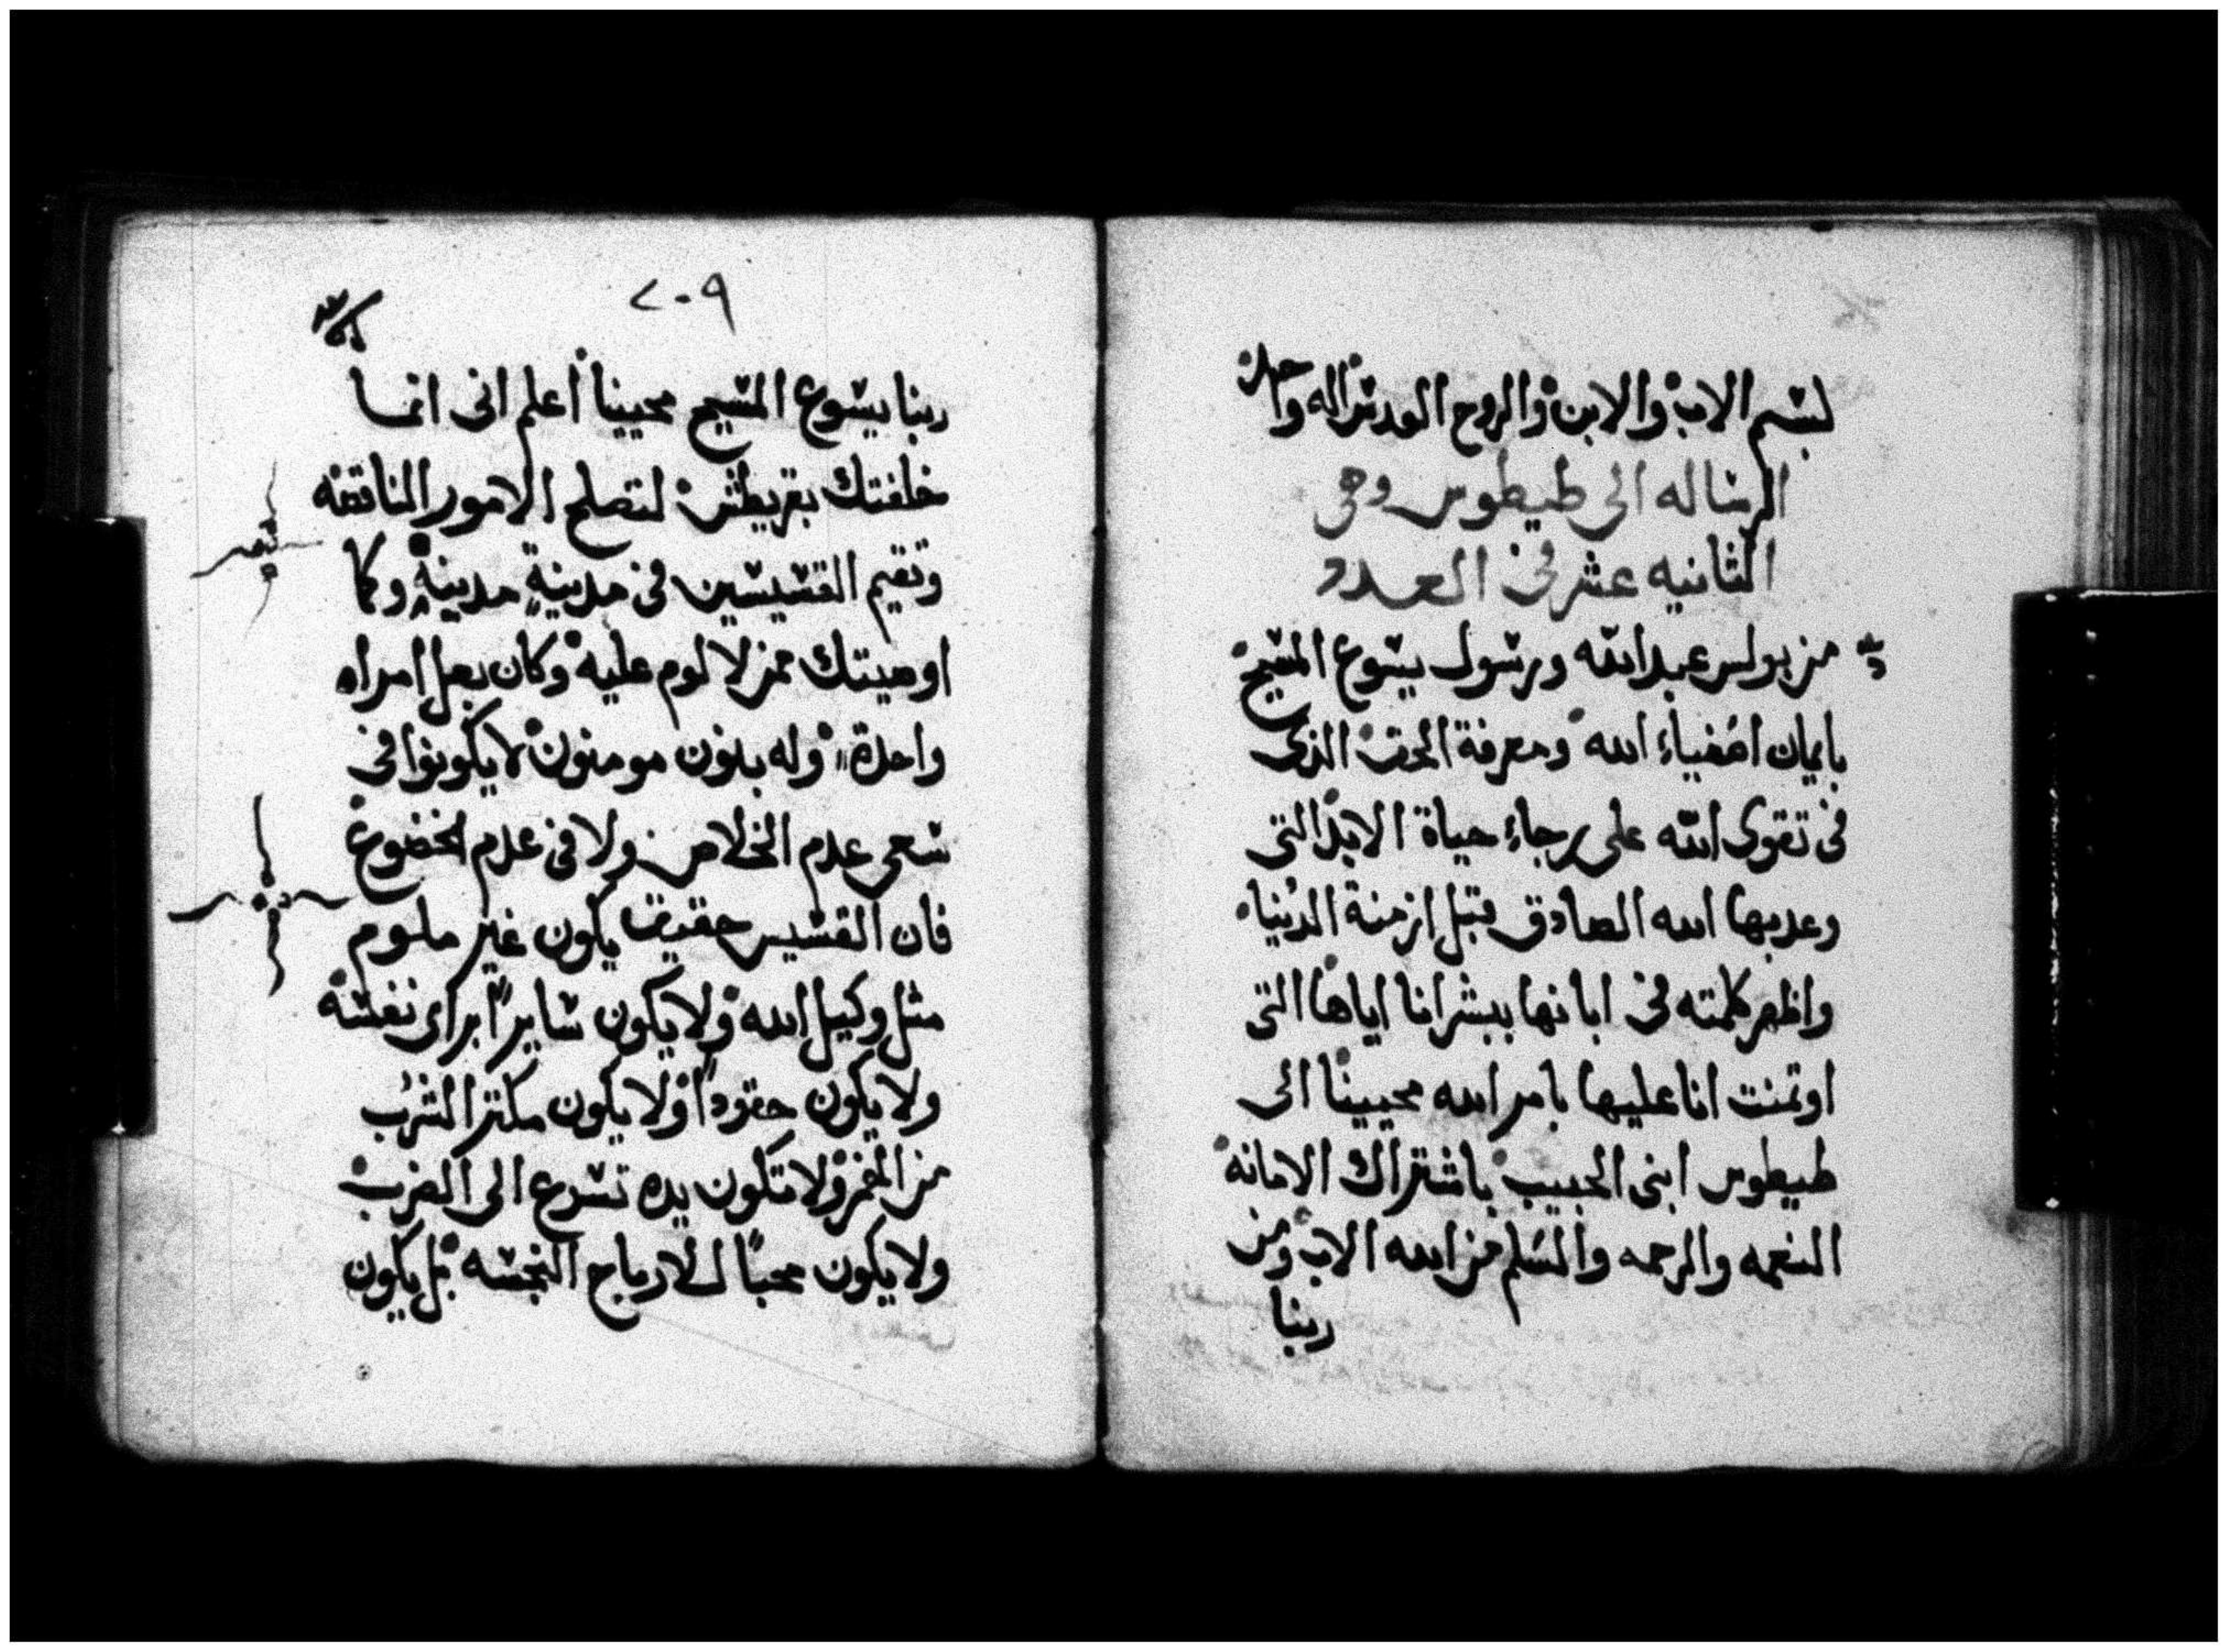 بسم الاب والابن والروح القدس اله واحد
الرساله الى طيطوس وهى
الثانيه عشر فى العدد
من بولس عبد الله ورسول يسوع المسيح
بايمان اصفياء الله ومعرفة الحق الذى
فى تقوى الله على رجاء حياة الابد التى
وعد بها الله الصادق قبل ازمنة الدنيا
واظهر كلمته فى ابانها ببشرانا اياها التى
اوتمنت انا عليها بامر الله محيينا الى
طيطوس ابنى الحبيب باشتراك الامانه
النعمه والرحمه والسلم من الله الاب ومن
ربنا
٢٠٩
ربنا يسوع المسيح محيينا أعلم انى انما
خلفتك بقريطش لتصلح الامور الناقصه
وتقيم القسيسين فى مدينةٍ مدينةٍ وكما
اوصيتك ممن لا لوم عليه وكان بعل امراه
واحدة وله بنون مومنون لا يكونوا فى
سعى عدم الخلاص ولا فى عدم الخضوع
فان القسيس حقيق يكون غير ملوم
مثل وكيل الله ولا يكون سايراً براى نفسه
ولا يكون حقوداً ولا يكون مكثر الشرب
من الخمر ولا تكون يده تسرع الى الضرب
ولا يكون محباً للارباح النجسه بل يكون